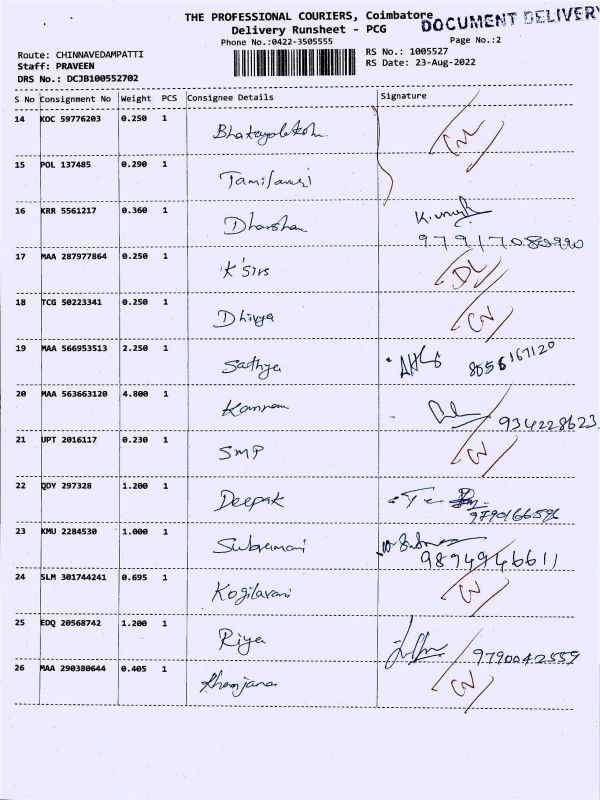 THE PROFESSIONAL COURIERS, Coimbatore
DOCUMENT DELIVERY
Delivery Runsheet - PCG
Phone No.:0422-3505555
Page No.:2
Route: CHINNAVEDAMPATTI
RS No.: 1005527
Staff: PRAVEEN
RS Date: 23-Aug-2022
DRS No.: DCJB100552702
S No Consignment No Weight PCS Consignee Details Signature
14 KOC 59776203 0.250 1
15 POL 137485 0.290 1
16 KRR 5561217 0.360 1 Dharshan
17 MAA 287977864 0.250 1 K'sirs DL
18 TCG 50223341 0.250 1 Dhivya
19 MAA 566953513 2.250 1 Sathya 8056167120
20 MAA 563663120 4.800 1 Kannan 934228623
21 UPT 2016117 0.230 1 SMP
22 QDY 297328 1.200 1 Deepak 9790166596
23 KMU 2284530 1.000 1 Subramani 9894946611
24 SLM 301744241 0.695 1 Kogilavani
25 EDQ 20568742 1.200 1 Riya 9790042559
26 MAA 290380644 0.405 1